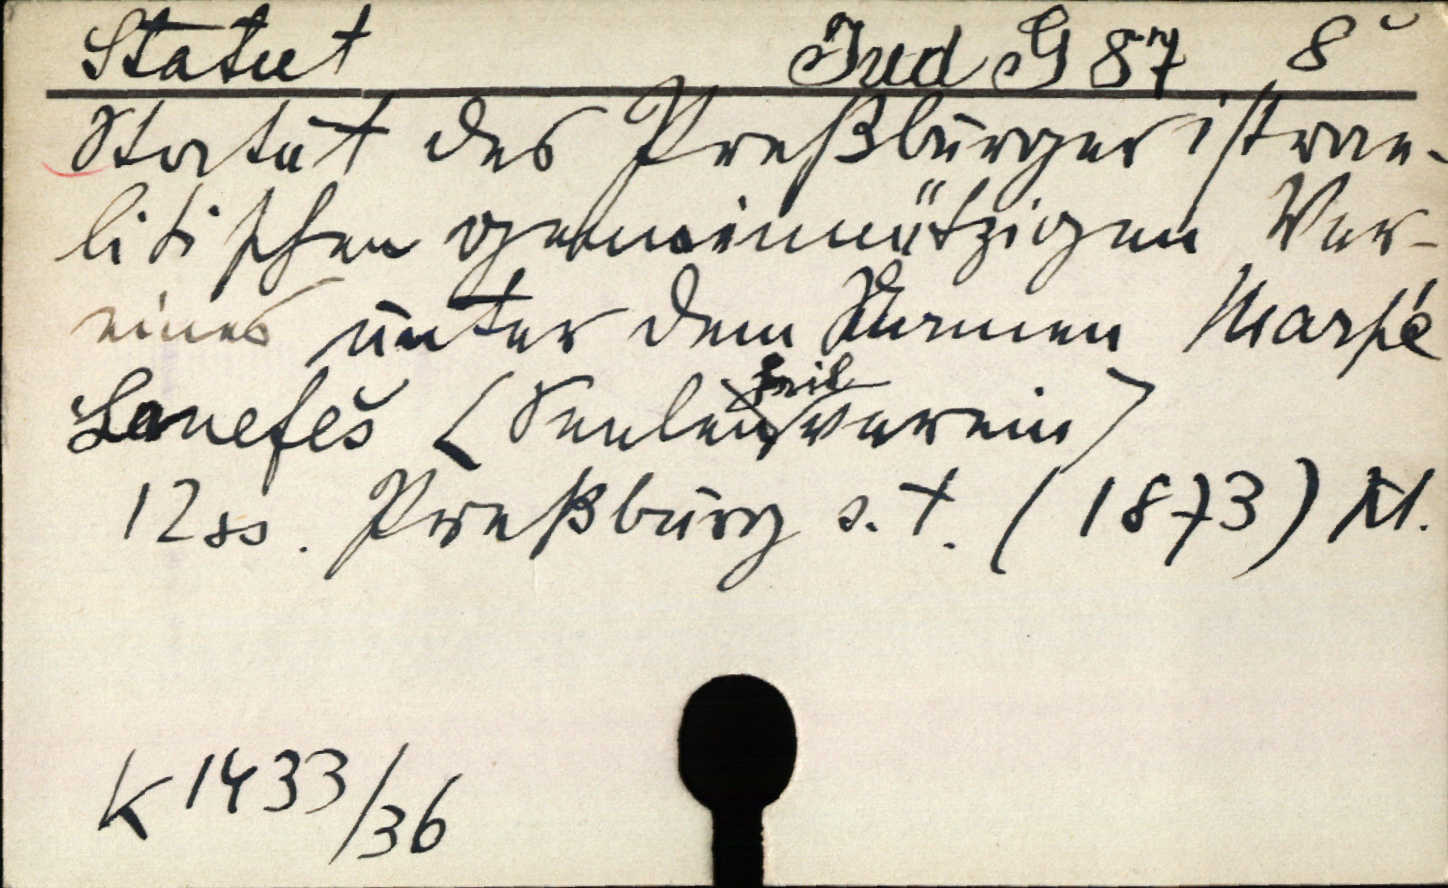 Statut Jud G 87 8°
Statut des Preßburger israe-
litischen gemeinnützigen Ver-
eines unter dem Namen Marpé
Lanefes (Seelenheilverein)
12 ss. Preßburg s. t. (1873) Kl.
K 1433/36